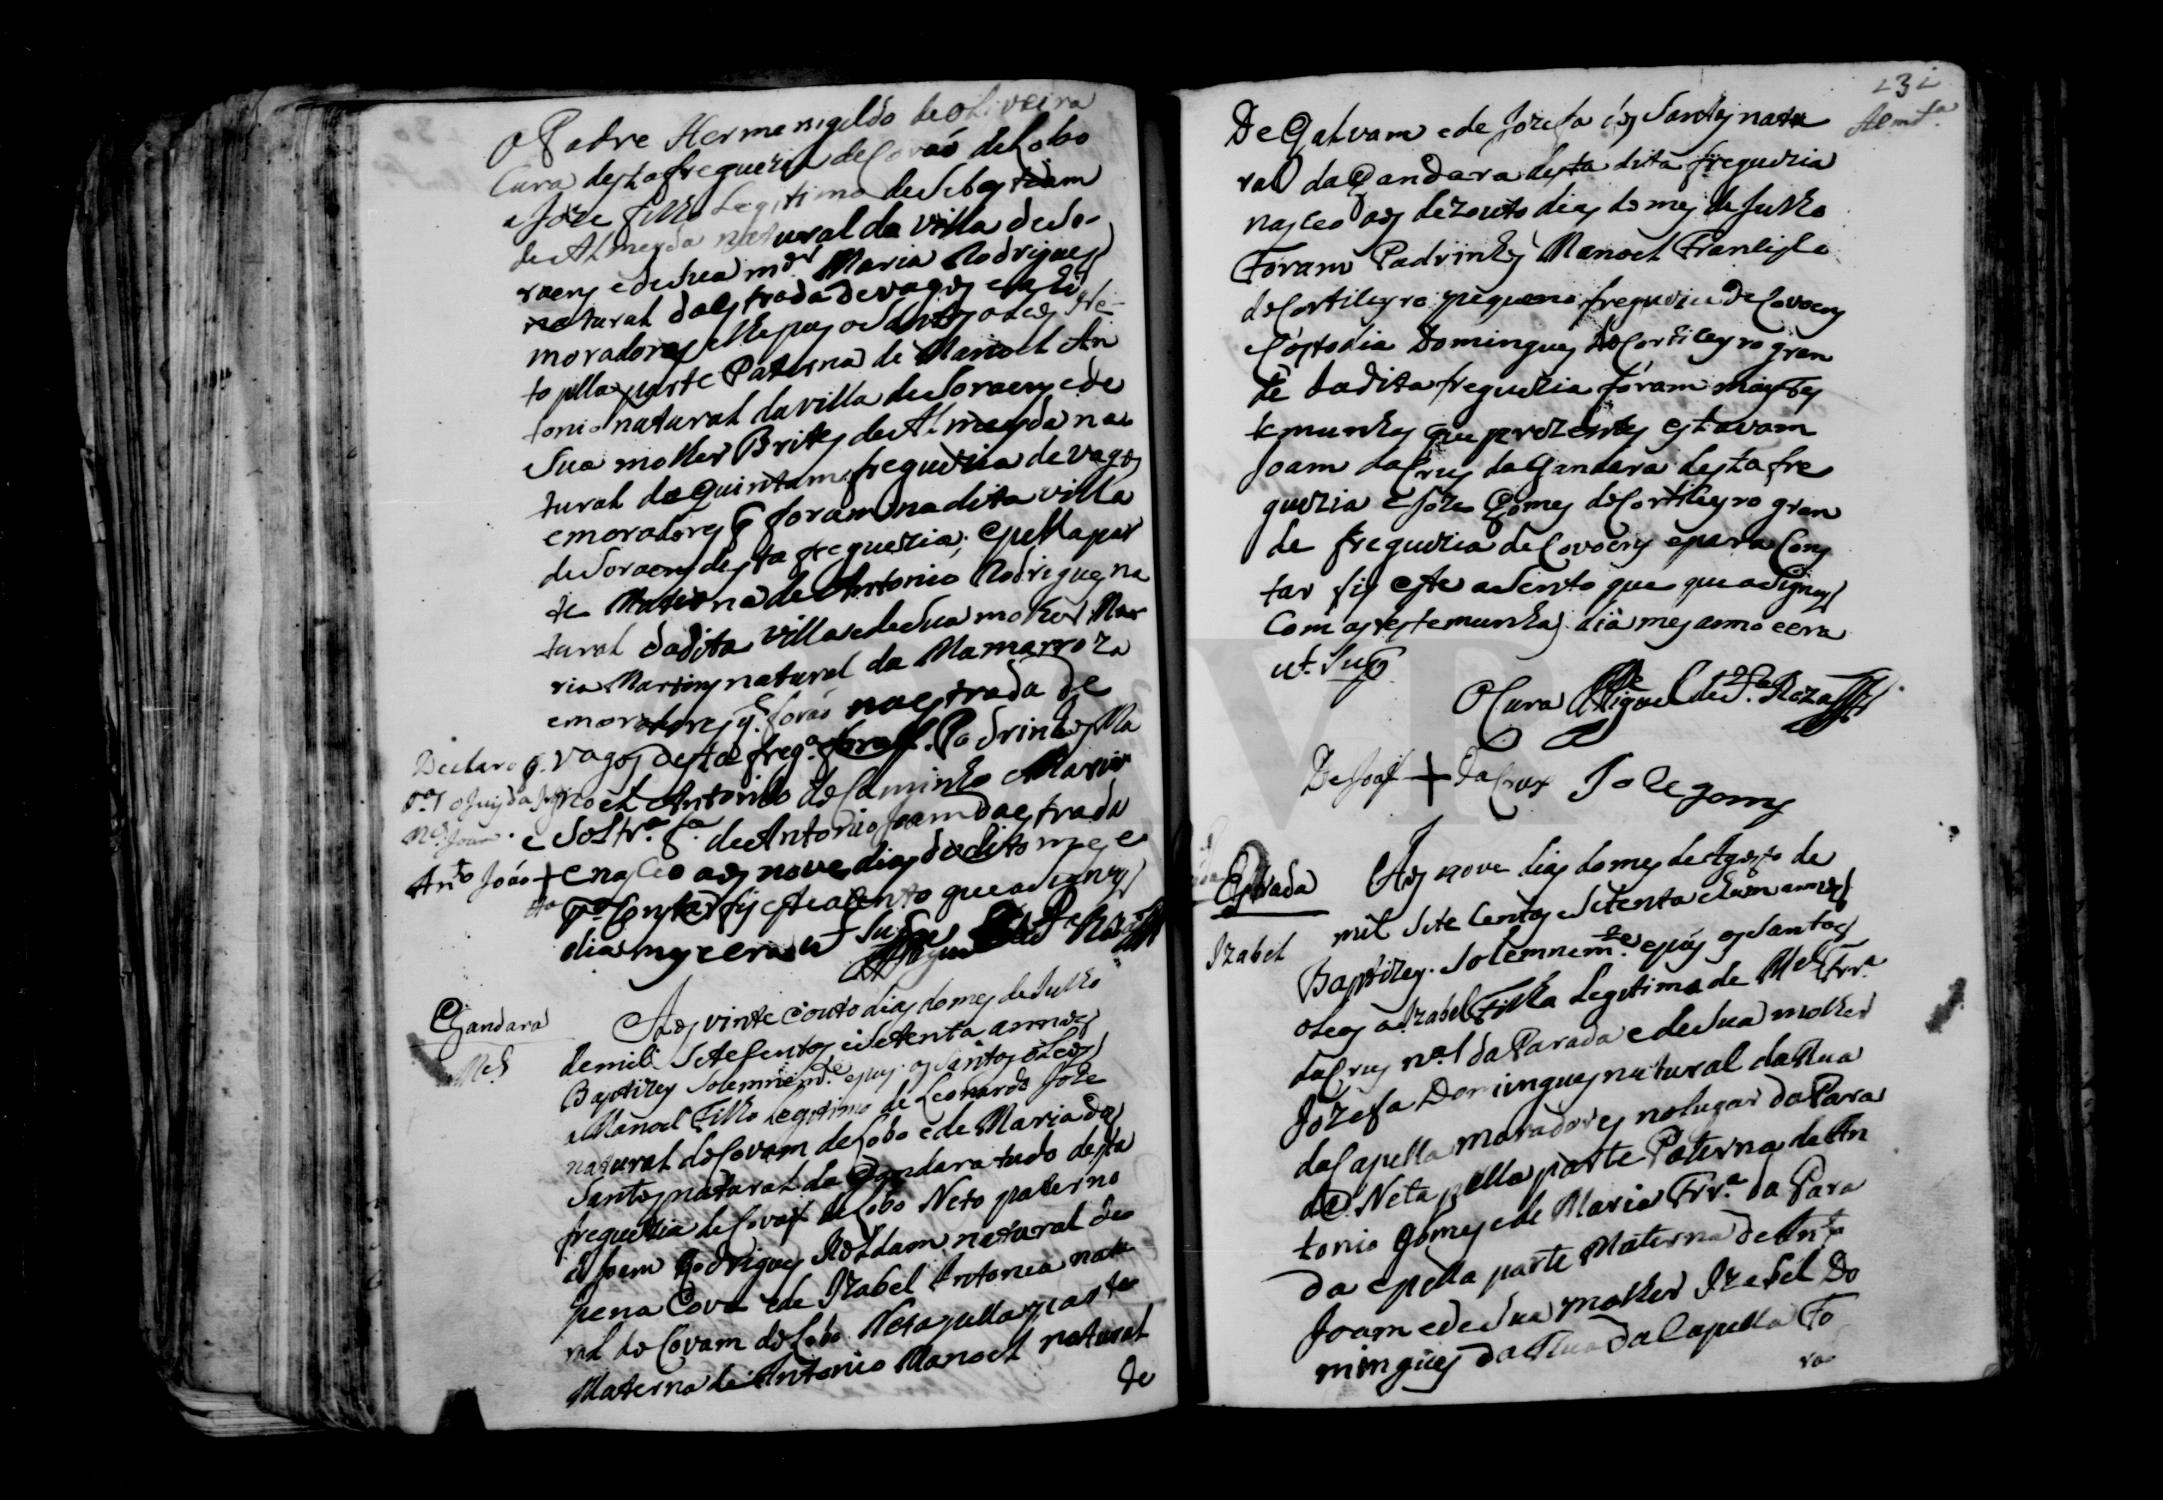 O Padre Hermenigildo de Oliveira
Cura desta freguezia de Covaó de Lobo
a Joze filho Legitimo de Sebastiam
de Almeyda natural da villa de So-
raens e de sua mer Maria Rodrigues
natural da estrada de vagos e ahi
moradores elhe pus os Santos oleos Ne-
to pella parte Paterna de Manoel An
tonio natural da villa de Soraens e de
Sua molher Brites de Almeyda na
tural da Quintam freguezia de vagos
e moradores q foram na dita villa
de Soraens desta freguezia; e pella par
te Materna de Antonio Rodrigues na
tural da dita villa e de Sua molher Ma
ria Martins natural da Mamarroza
e moradores q. foraó na estrada de
vagos desta freg.a foraó Padrinhos Ma
noel Antonio do Caminho e Maria
Solt.ra f.a de Antonio Joam da estrada
e nasceo aos nove dias do dito mes e
p.a Constar fis este asento que asigney
dia mes e era ut Supra
Declaro q.
Ant.o Joáo +
Gandara
M.el
Aos vinte e outo dias do mes de Julho
de mil Setesentos e setenta annos
Baptizey Solemnem.te e pus os santos oleos
a Manoel Filho Legitimo de Leonardo Joze
natural de Covam de Lobo e de Maria dos
Santos natural da Gandara tudo desta
freguezia de Covaó de Lobo Neto paterno
de Joam Rodrigues Roldam natural de
pena Cova e de Izabel Antonia natu
ral de Covam de Lobo Neto pella parte
Materna de Antonio Manoel natural
de
De Galvam e de Jozefa dos Santos natu
ral da Gandara desta dita freguezia
nasceo aos dezouto dias do mes de Julho
Foram Padrinhos Manoel Francisco
do Cortiseyro piqueno freguezia de Covoens
Costodia Domingues do Cortiseyro gran
de da dita freguezia foram mais tes
temunhas que prezentes estavam
Joam da Crus da Gandara desta fre
guezia e Joze Gomes do Cortiseyro gran
de freguezia de Covoens e para Cons
tar fis este asento que que asigney
Com as testemunhas dia mes anno e era
ut Supra
O Cura Miguel de Roza
De Joaó + da Crus Joze gomes
Estrada
Izabel
Aos nove dias do mes de Agosto de
mil Sete Centos e Setenta e hum annos
Baptizey Solemnem.te e pus os Santos
oleos a Izabel Filha Legitima de M.el Frr.a
da Crus n.al da Parada e de Sua molher
Jozefa Domingues natural da Rua
da Capella moradores no lugar da Para
da Neta pella parte Paterna de An
tonio Gomes e de Maria Frr.a da Para
da e pella parte Materna de Ant.o
Joam e de Sua molher Izabel Do
mingues da Rua da Capella Fo
rao